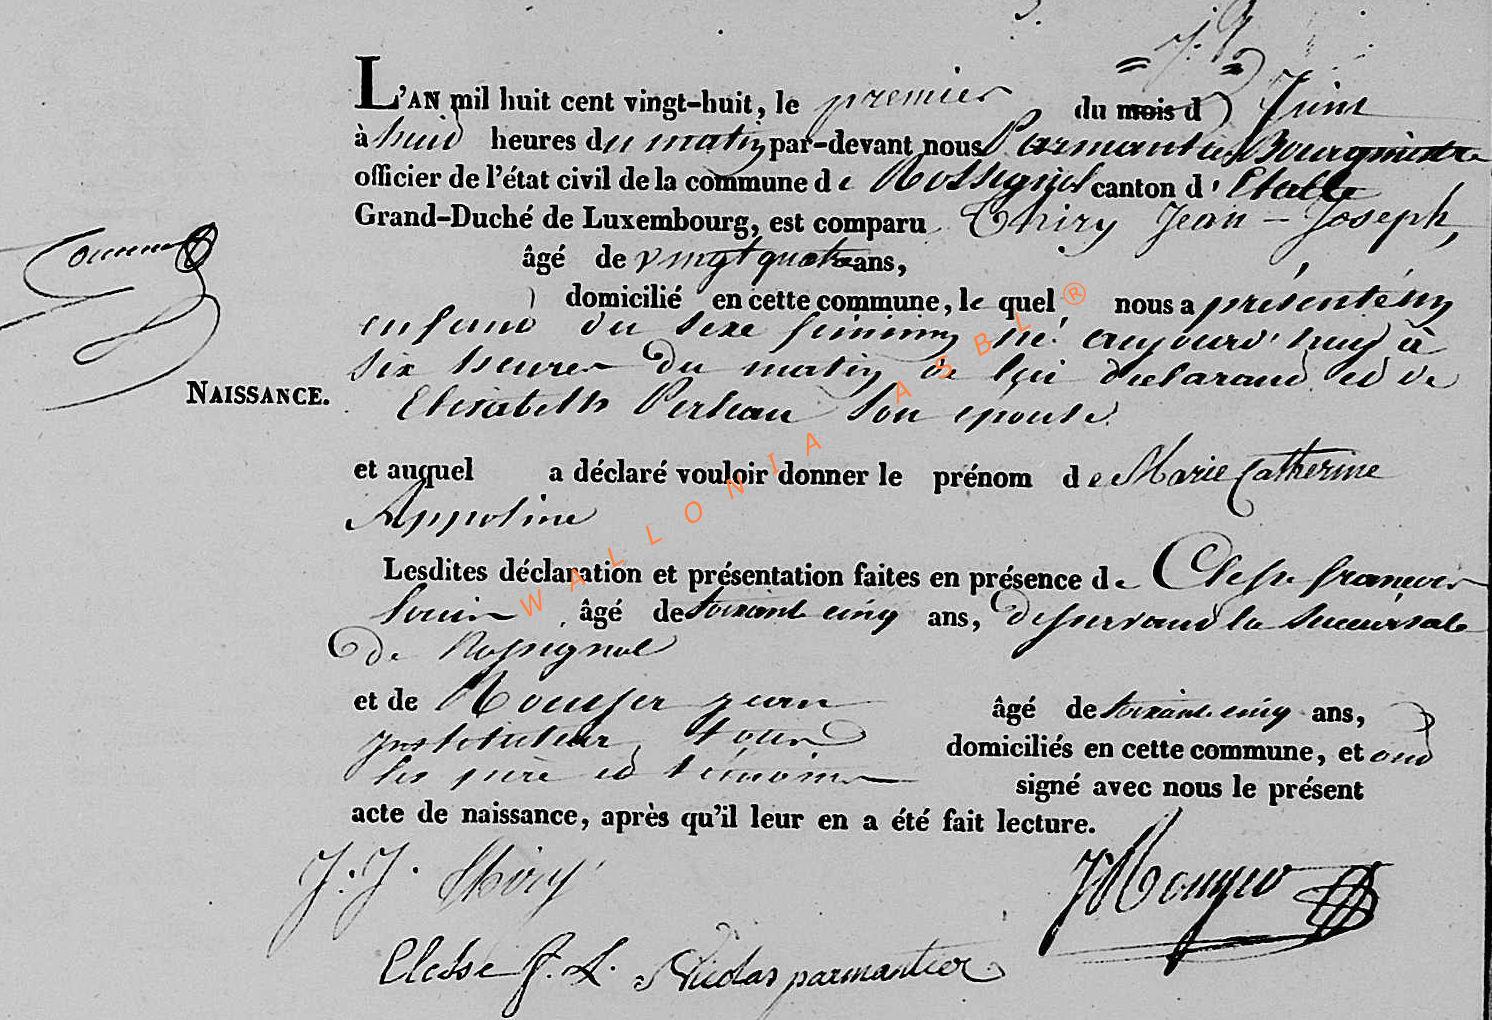 L'AN mil huit cent vingt-huit, le premier du mois d Juin
à huit heures du matin par-devant nous Parmantier Bourgmestre
officier de l'état civil de la commune de Rossignol canton d'Etalle
Grand-Duché de Luxembourg, est comparu Thiry Jean-Joseph,
âgé de vingt quatre ans,
domicilié en cette commune, le quel nous a présenté un
enfant du sexe feminin né aujourd'huy à
six heures du matin de lui declarant et de
Elisabeth Perleau son epouse
NAISSANCE.
et auquel a déclaré vouloir donner le prénom de Marie Catherine
Appoline
Lesdites déclaration et présentation faites en présence de Clesse francois
louis âgé de soixante cinq ans, desservant la succursale
de Rossignol
et de jean âgé de soixante cinq ans,
instituteur, tous domiciliés en cette commune, et ont
les père et témoins signé avec nous le présent
acte de naissance, après qu'il leur en a été fait lecture.
J. J. Thiry
Clesse f. L. Nicolas parmantier
WALLONIA ASBL ®